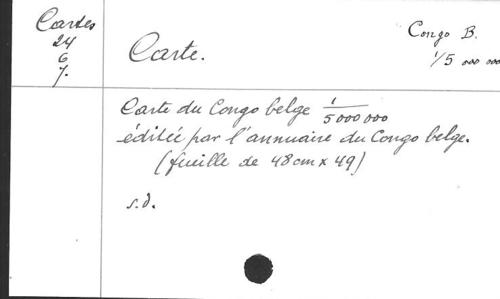 Cartes
24
6
7.
Carte.
Congo B.
1/5 000 000
Carte du Congo belge 1/5 000 000
éditée par l'annuaire du Congo belge.
(feuille de 48cm x 49)
s.d.